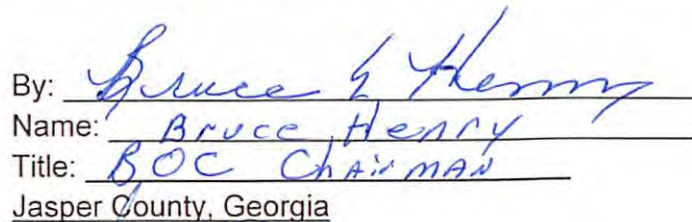 By: Bruce E Henry
Name: Bruce Henry
Title: BOC Chairman
Jasper County, Georgia